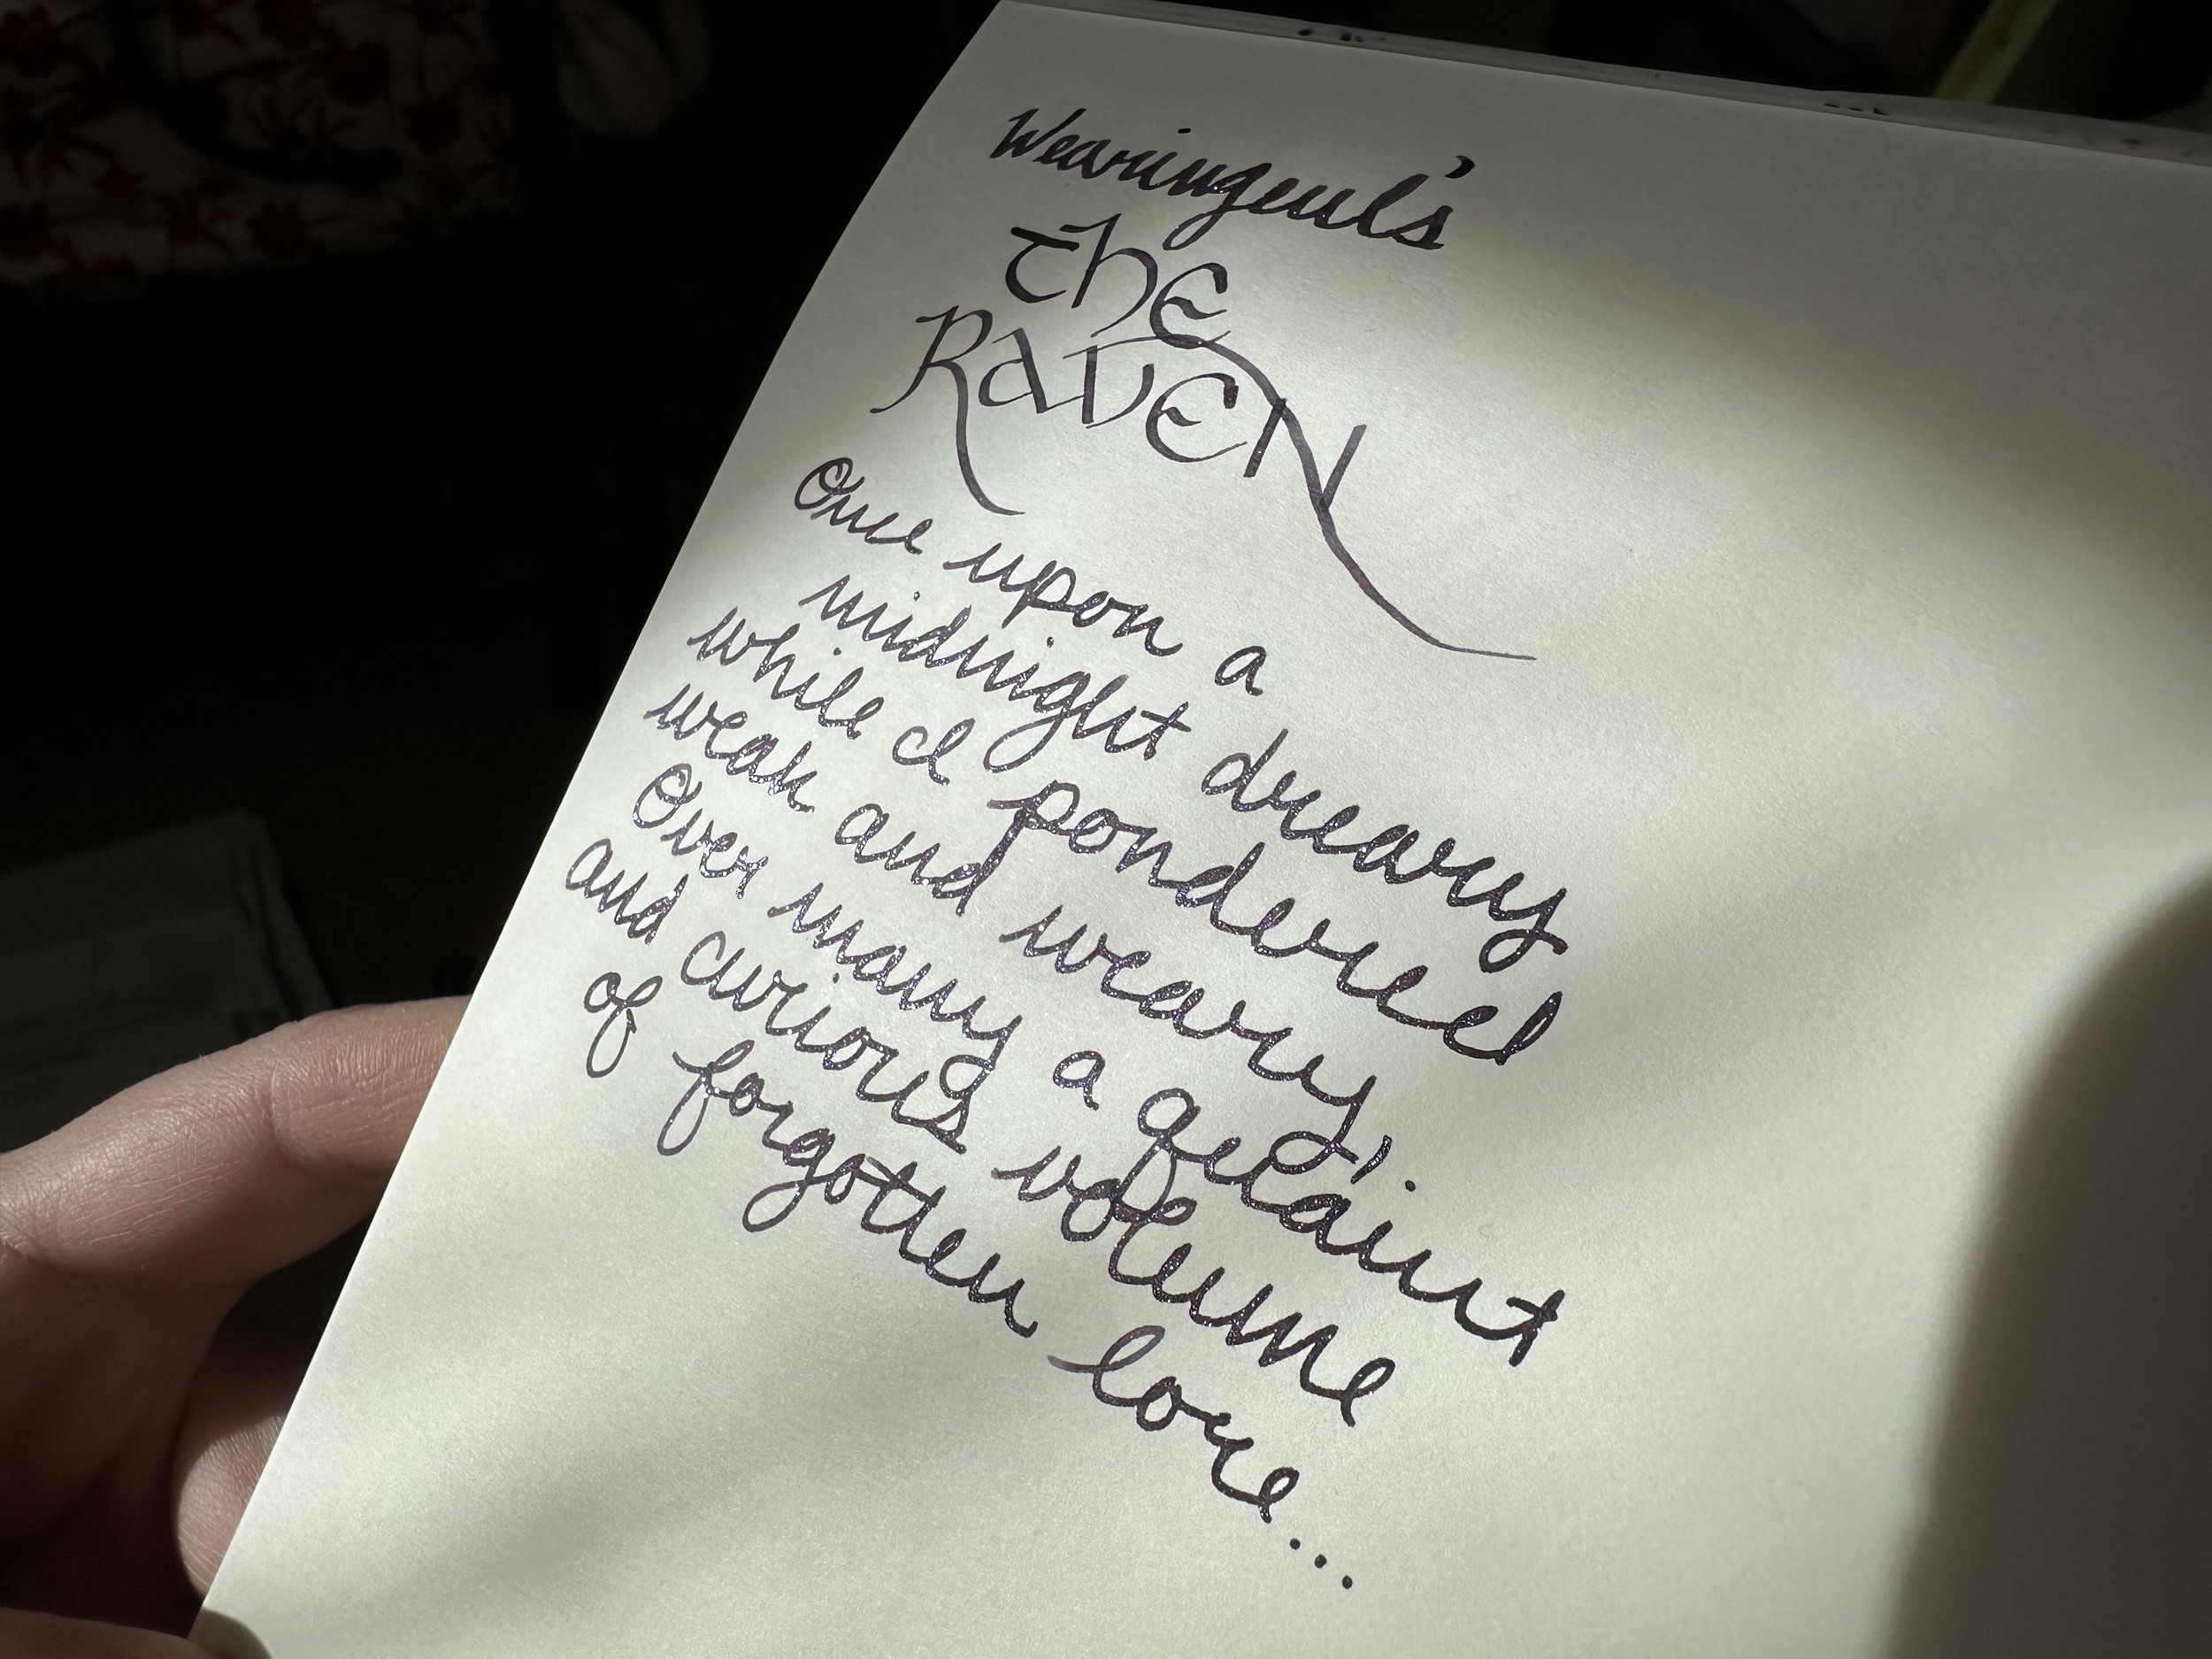 Wearingeul's
THE
RAVEN
Once upon a
midnight dreary
while I pondered
weak and weary,
Over many a quaint
and curious volume
of forgotten lore...